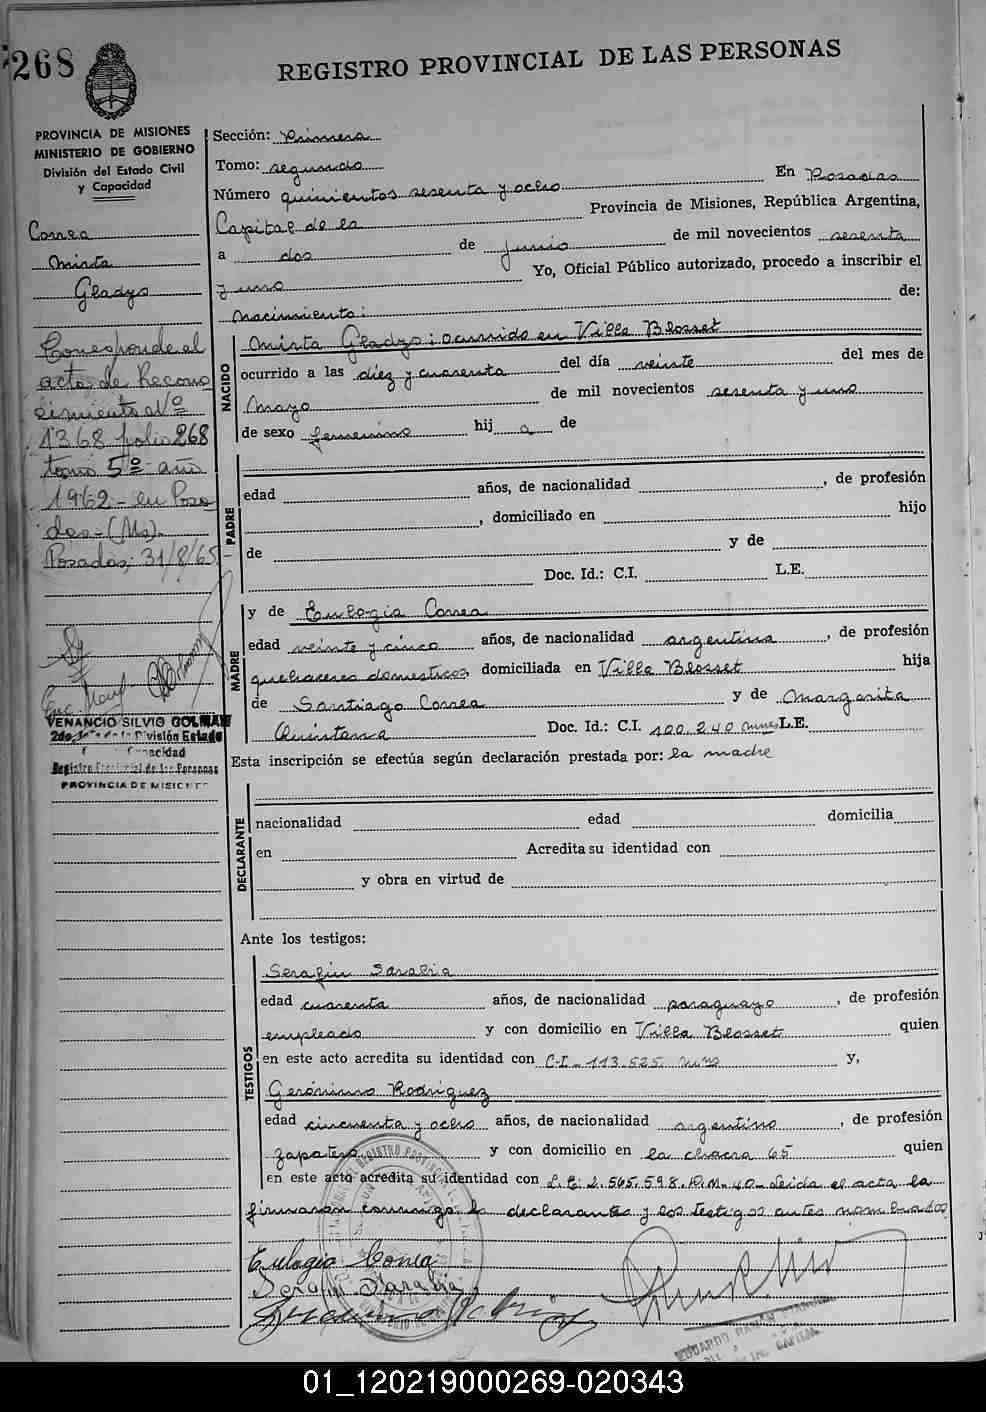 268
REGISTRO PROVINCIAL DE LAS PERSONAS
PROVINCIA DE MISIONES
MINISTERIO DE GOBIERNO
División del Estado Civil
y Capacidad
Correa
Mirta
Gladys
Corresponde al
acta de Recono
cimiento Nº
1368 folio 268
tomo 5º año
1962 - en Posa
das - (Ms).
Posadas, 31/8/65
VENANCIO SILVIO GOLMAN
2do. Jefe de la División Estado
Capacidad
Registro Provincial de las Personas
PROVINCIA DE MISIONES
Sección: Primera
Tomo: segundo
Número quinientos sesenta y ocho En Posadas
Capital de la Provincia de Misiones, República Argentina,
a dos de junio de mil novecientos sesenta
y uno Yo, Oficial Público autorizado, procedo a inscribir el
nacimiento: de:
NACIDO
Mirta Gladys: ocurrido en Villa Blosset
ocurrido a las diez y cuarenta del día veinte del mes de
Mayo de mil novecientos sesenta y uno
de sexo femenino hij a de
PADRE
edad años, de nacionalidad , de profesión
, domiciliado en hijo
de y de
Doc. Id.: C.I. L.E.
MADRE
y de Eulogia Correa
edad veinte y cinco años, de nacionalidad argentina, de profesión
quehaceres domesticos, domiciliada en Villa Blosset hija
de Santiago Correa y de Margarita
Quintana Doc. Id.: C.I. 100.240 mnes L.E.
Esta inscripción se efectúa según declaración prestada por: la madre
DECLARANTE
nacionalidad edad domicilia
en Acredita su identidad con
y obra en virtud de
Ante los testigos:
TESTIGOS
Serafin Sarabia
edad cuarenta años, de nacionalidad paraguayo, de profesión
empleado y con domicilio en Villa Blosset quien
en este acto acredita su identidad con C-I- 113.525 mnes y,
Gerónimo Rodriguez
edad cincuenta y ocho años, de nacionalidad argentino, de profesión
zapatero y con domicilio en la chacra 65 quien
en este acto acredita su identidad con L.E. 2.565.598. D.M. 40- Leida el acta la
firmaron conmigo la declarante y los testigos antes nombrados
Eulogia Correa
Serafin Sarabia
EDUARDO RAMÓN
CAPITAL
01_120219000269-020343